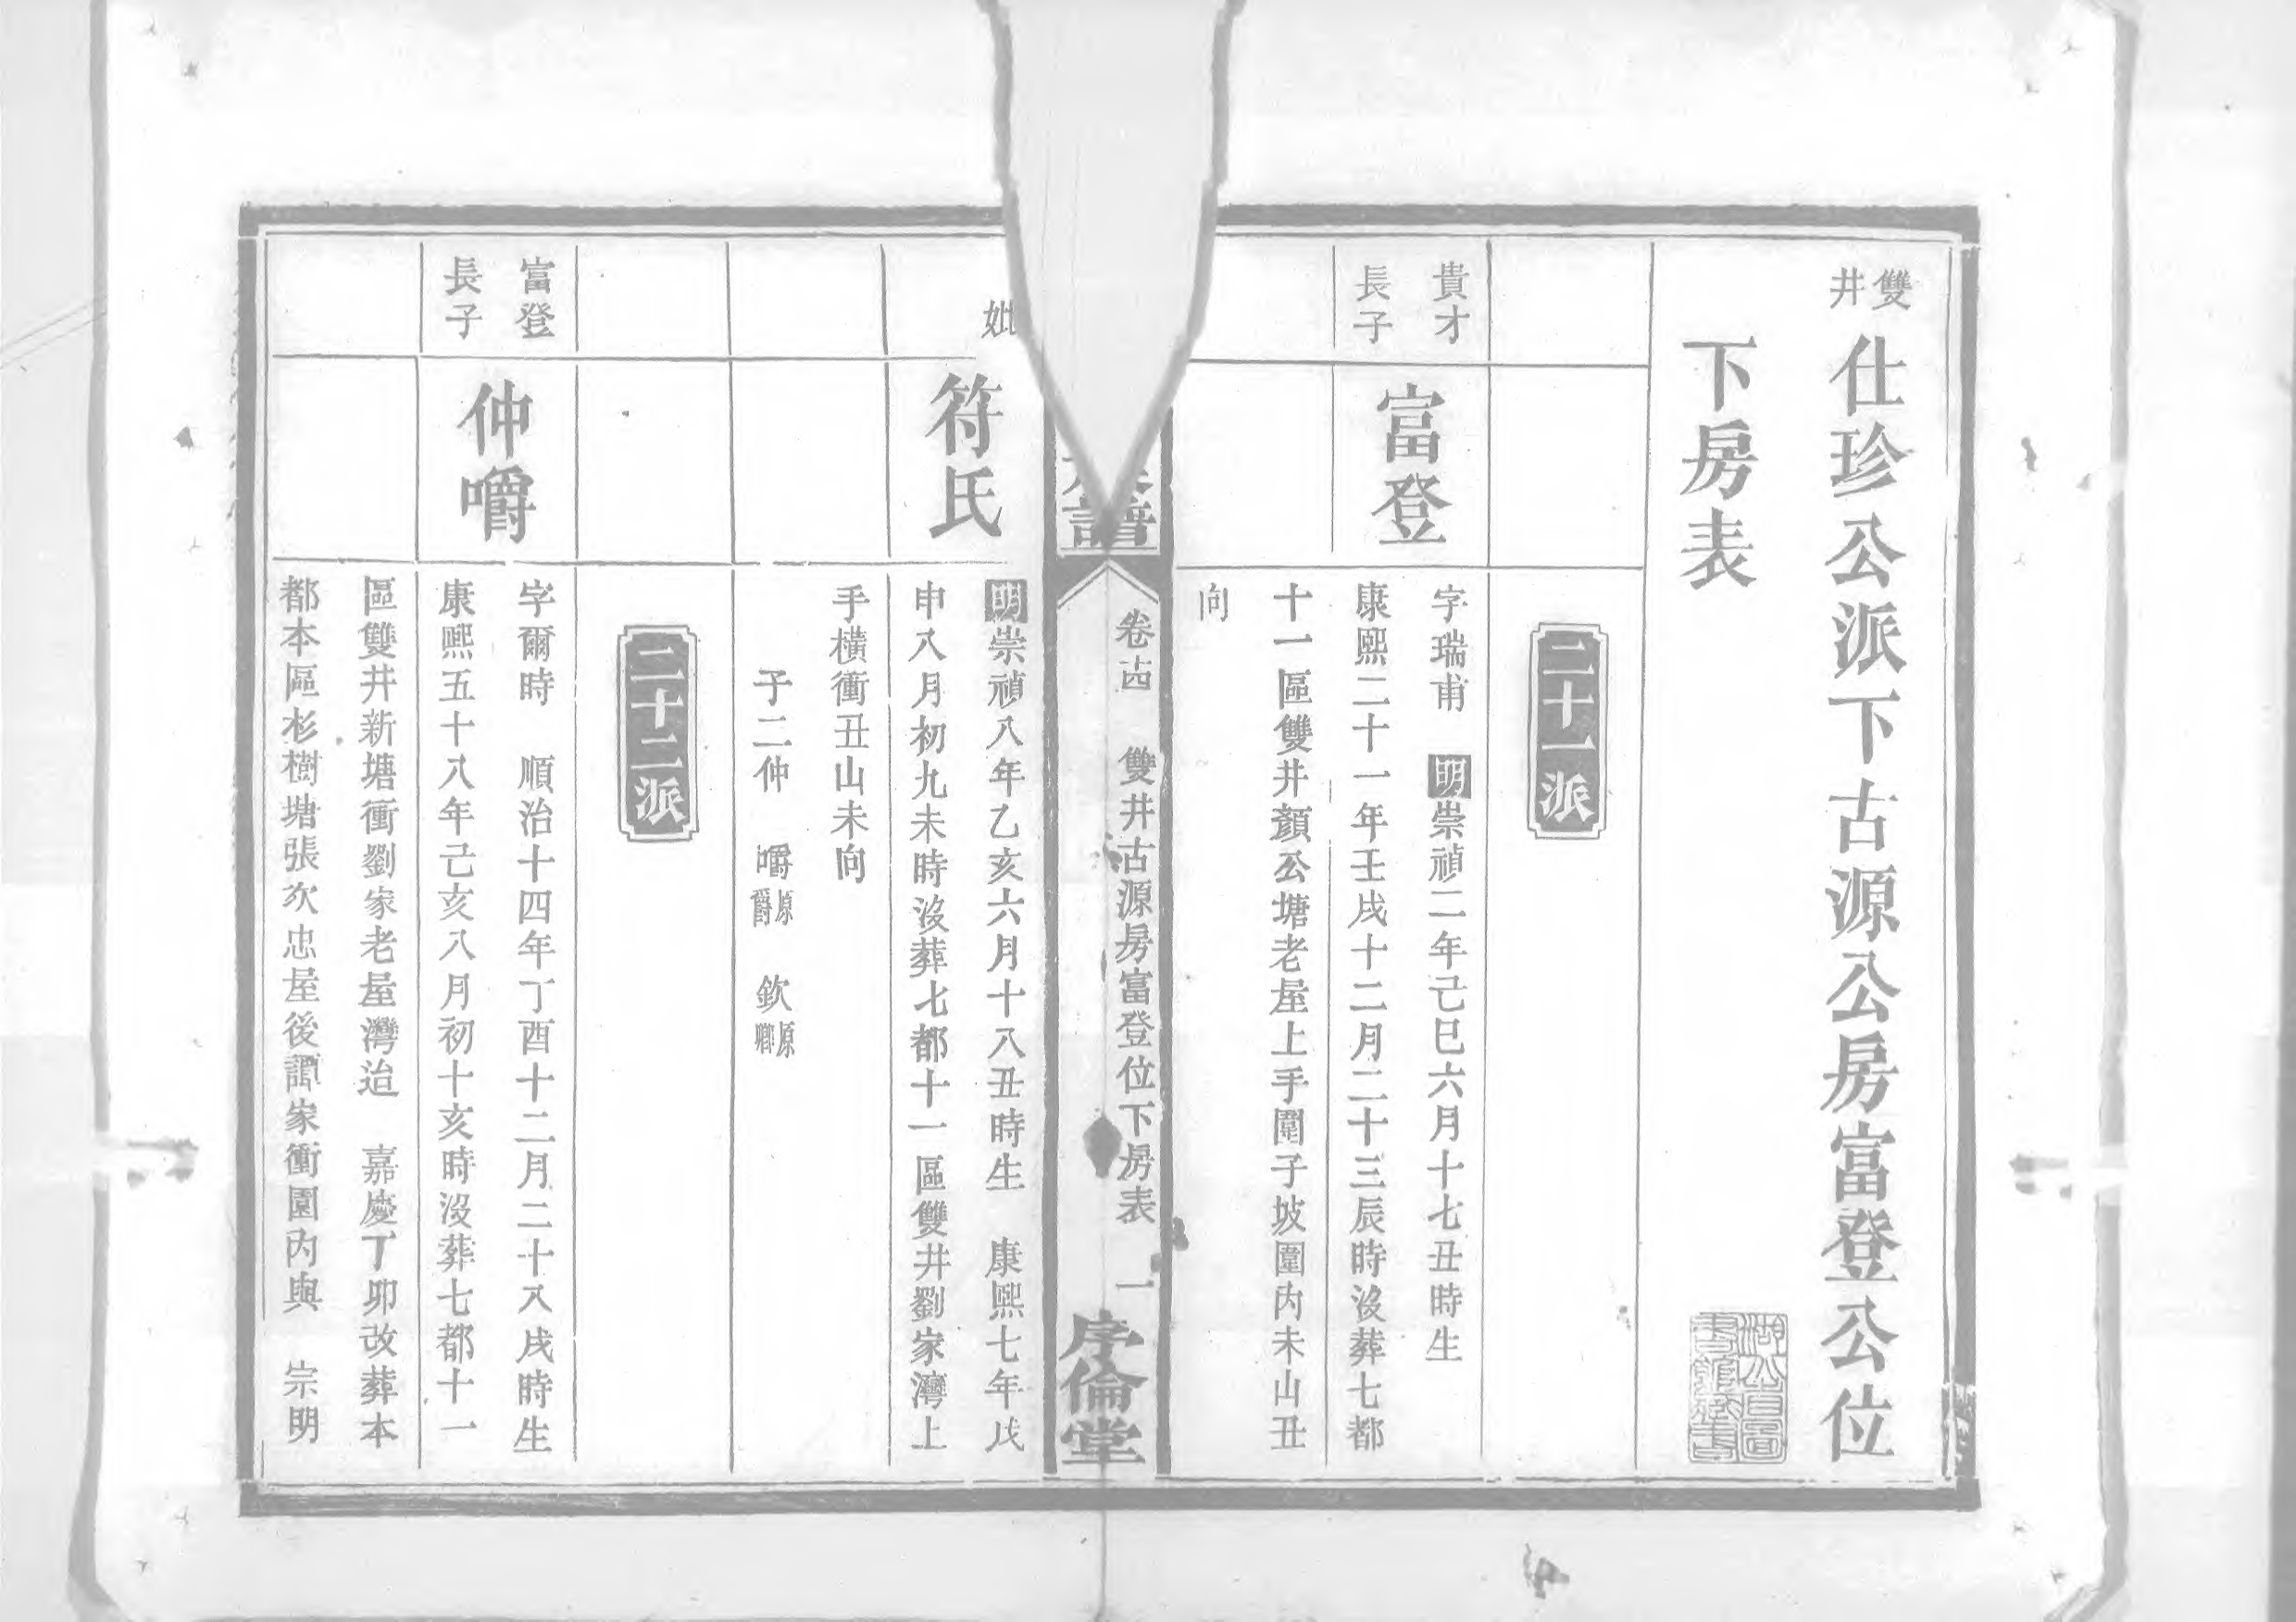 雙井
仕珍公派下古源公房富登公位
下房表
二十一派
貴才
長子
富登
字瑞甫　明崇禎二年己巳六月十七丑時生
康熙二十一年壬戌十二月二十三辰時沒葬七都
十一區雙井顏公塘老屋上手圍子坡圍內未山丑
向
譜
卷十四　雙井古源房富登位下房表　一
序倫堂
妣
符氏
明崇禎八年乙亥六月十八丑時生　康熙七年戊
申八月初九未時沒葬七都十一區雙井劉家灣上
手橫衝丑山未向
子二仲　嚼原爵　欽原卿
二十二派
富登
長子
仲嚼
字爾時　順治十四年丁酉十二月二十八戌時生
康熙五十八年己亥八月初十亥時沒葬七都十一
區雙井新塘衝劉家老屋灣迨　嘉慶丁卯改葬本
都本區杉樹塘張次忠屋後譚家衝園內與　宗明